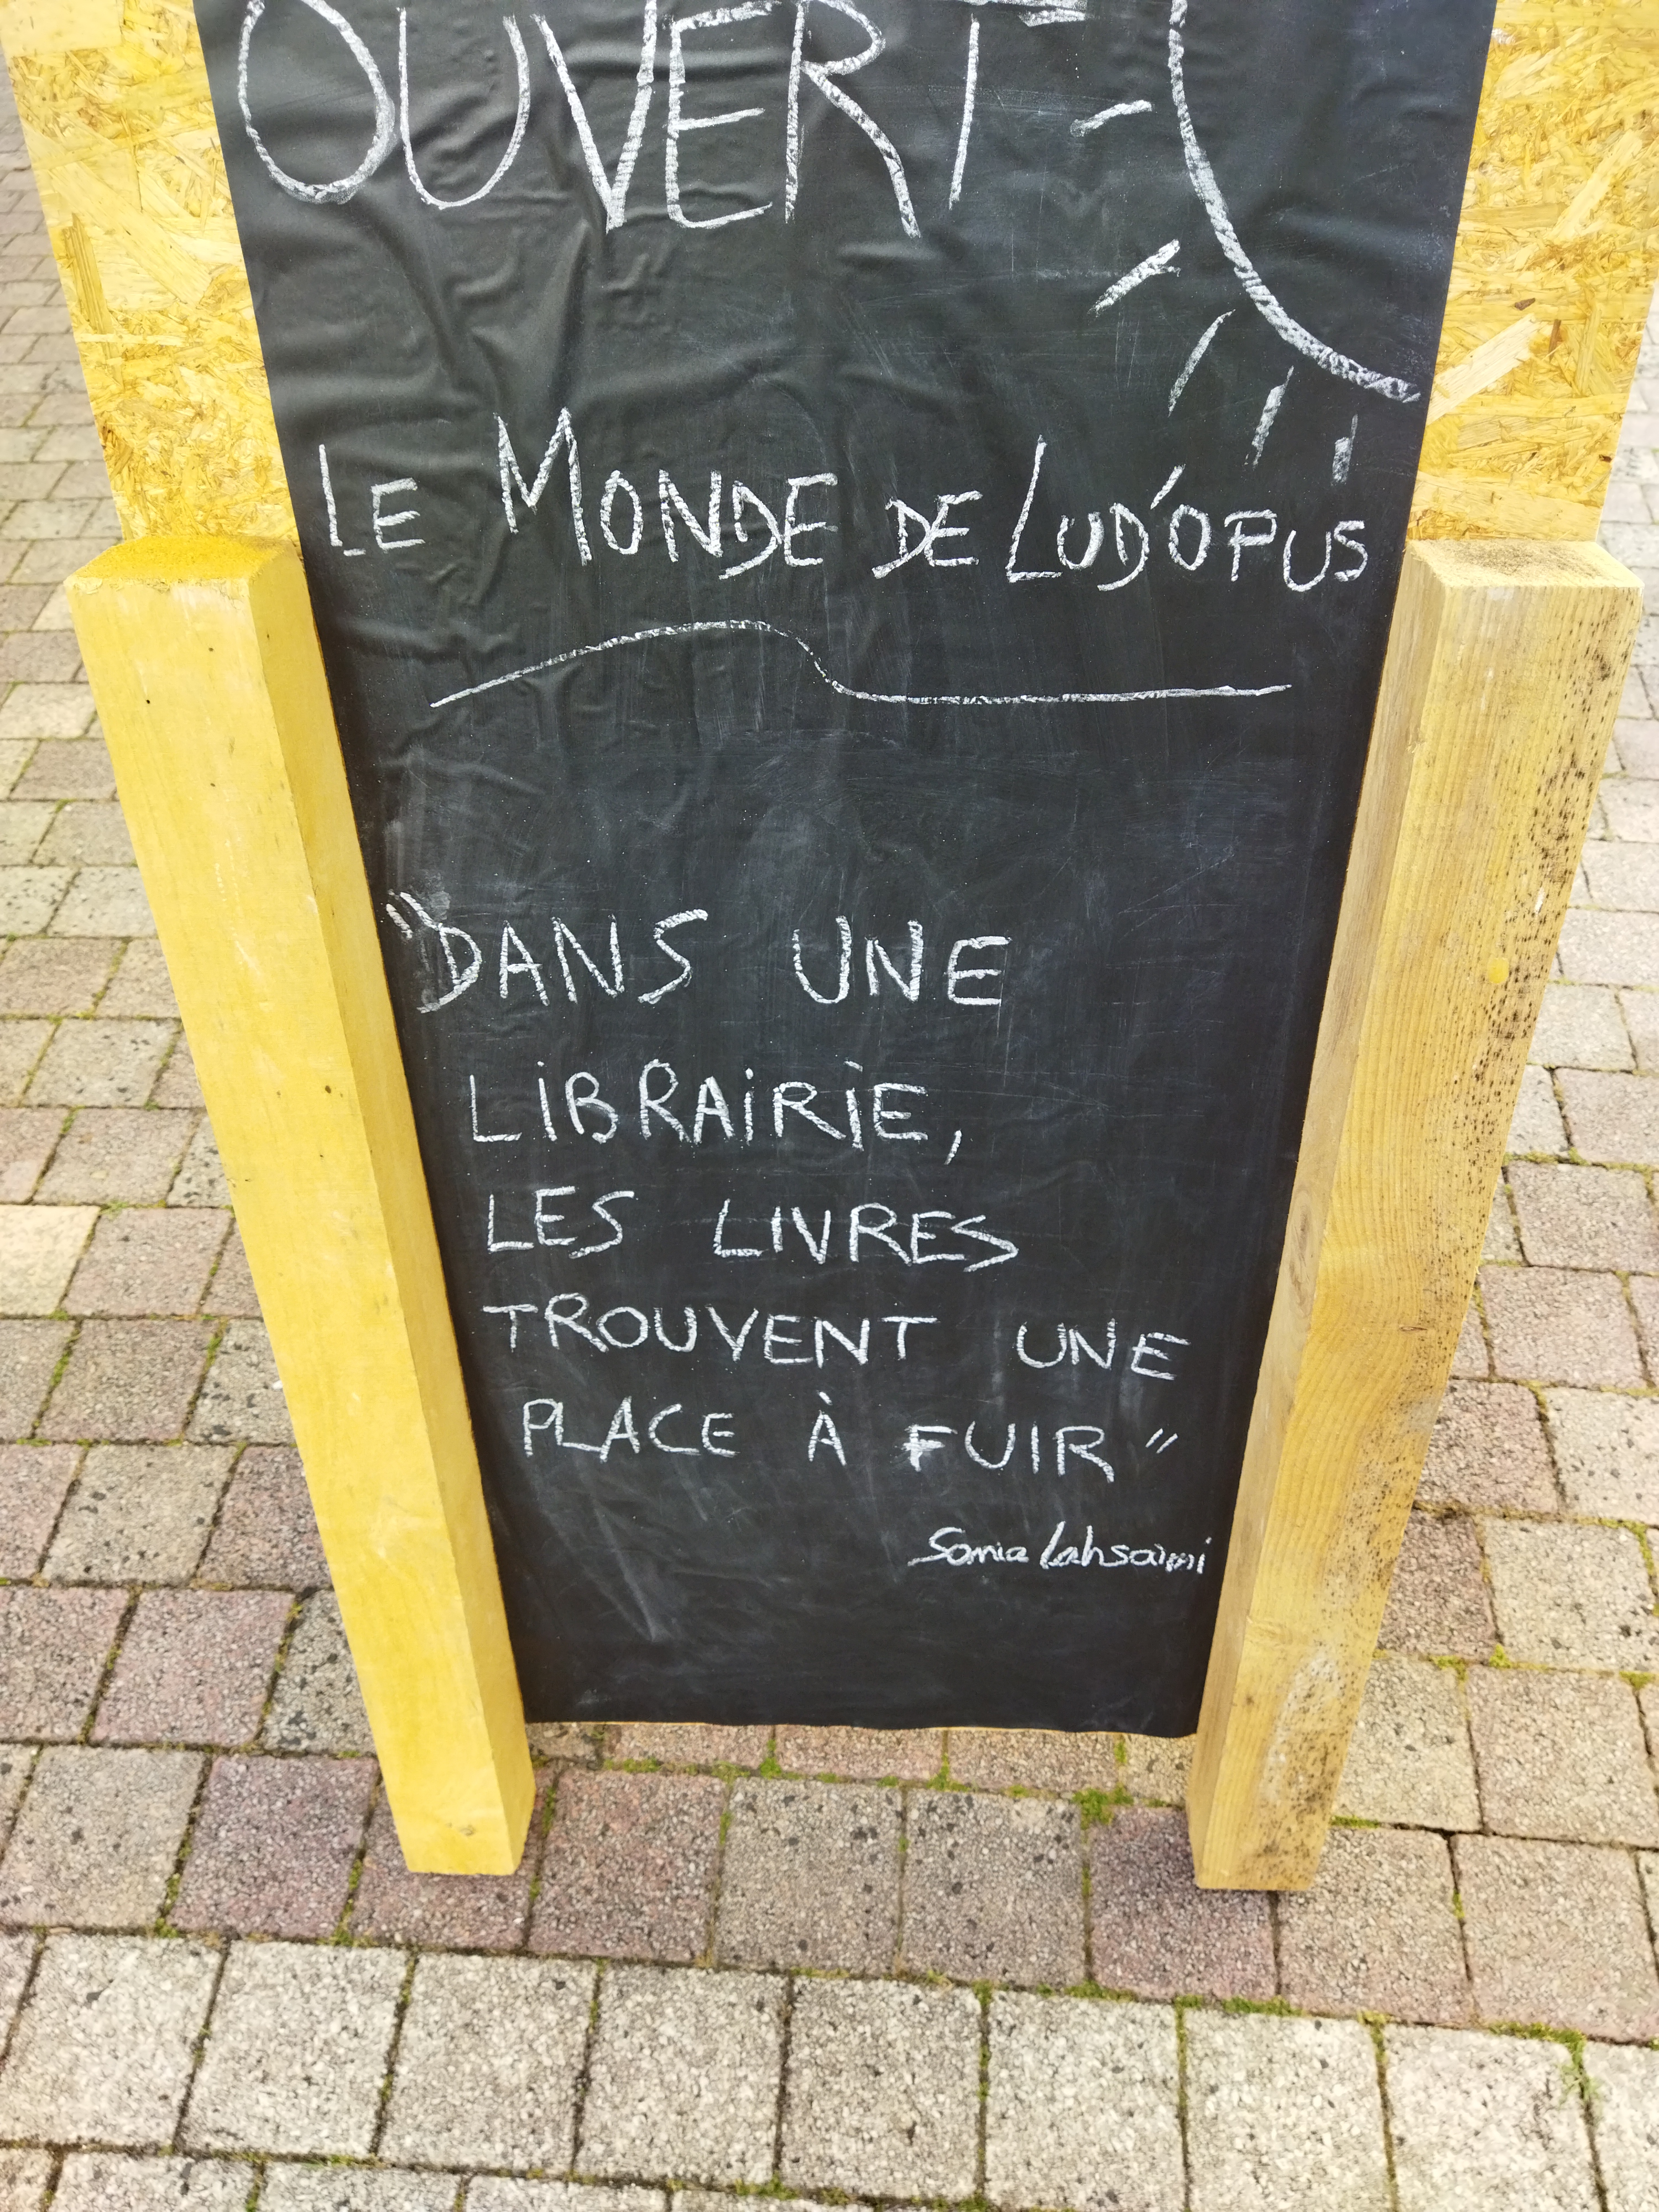 OUVERT
LE MONDE DE LUD'OPUS
"DANS UNE
LIBRAIRIE,
LES LIVRES
TROUVENT UNE
PLACE À FUIR"
Sonia Lahsaini